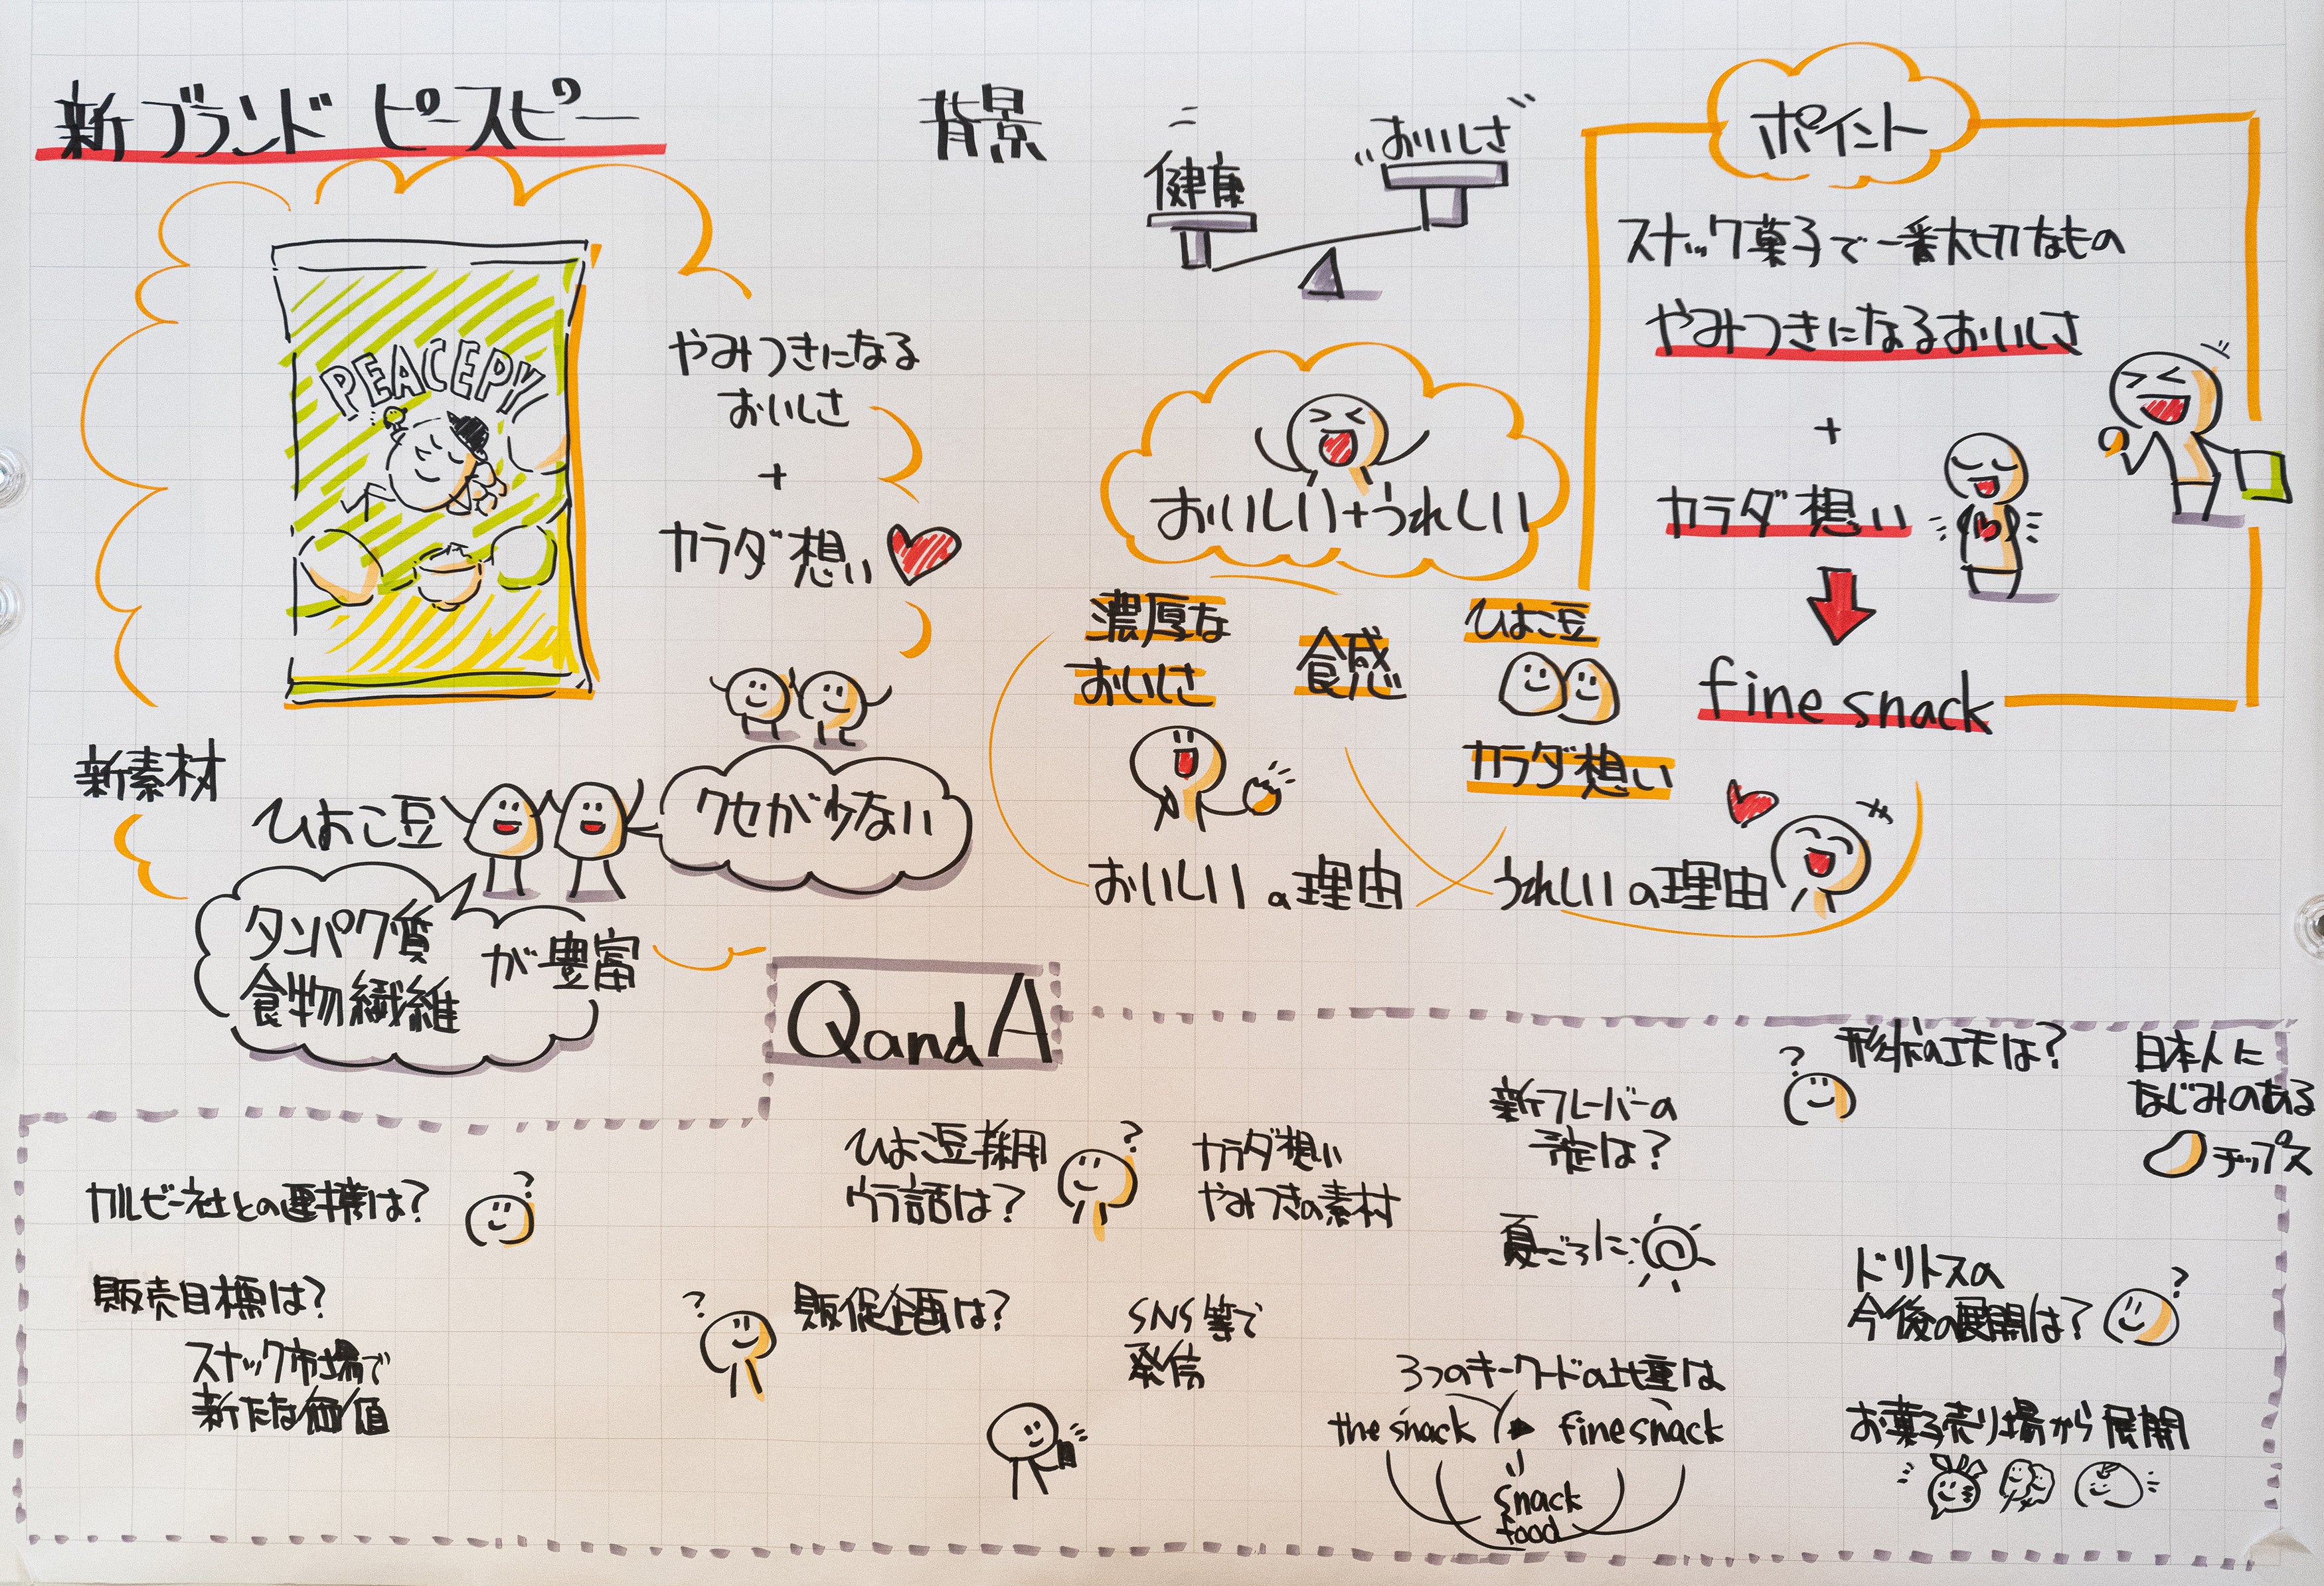 新ブランド ピースピー
PEACEPY
やみつきになる
おいしさ
+
カラダ想い
新素材
ひよこ豆
クセが少ない
タンパク質
食物繊維
が豊富
背景
健康
おいしさ
おいしい+うれしい
濃厚な
おいしさ
食感
ひよこ豆
カラダ想い
おいしいの理由
うれしいの理由
ポイント
スナック菓子で一番大切なもの
やみつきになるおいしさ
+
カラダ想い
fine snack
Q and A
カルビー社との連携は?
販売目標は?
スナック市場で
新たな価値
ひよこ豆採用
ウラ話は?
カラダ想い
やみつきの素材
販促企画は?
SNS等で
発信
新フレーバーの
予定は?
夏ごろに
3つのキーワードの比重は
the snack
fine snack
snack
food
形状の工夫は?
日本人に
なじみのある
チップス
ドリトスの
今後の展開は?
お菓子売り場から展開